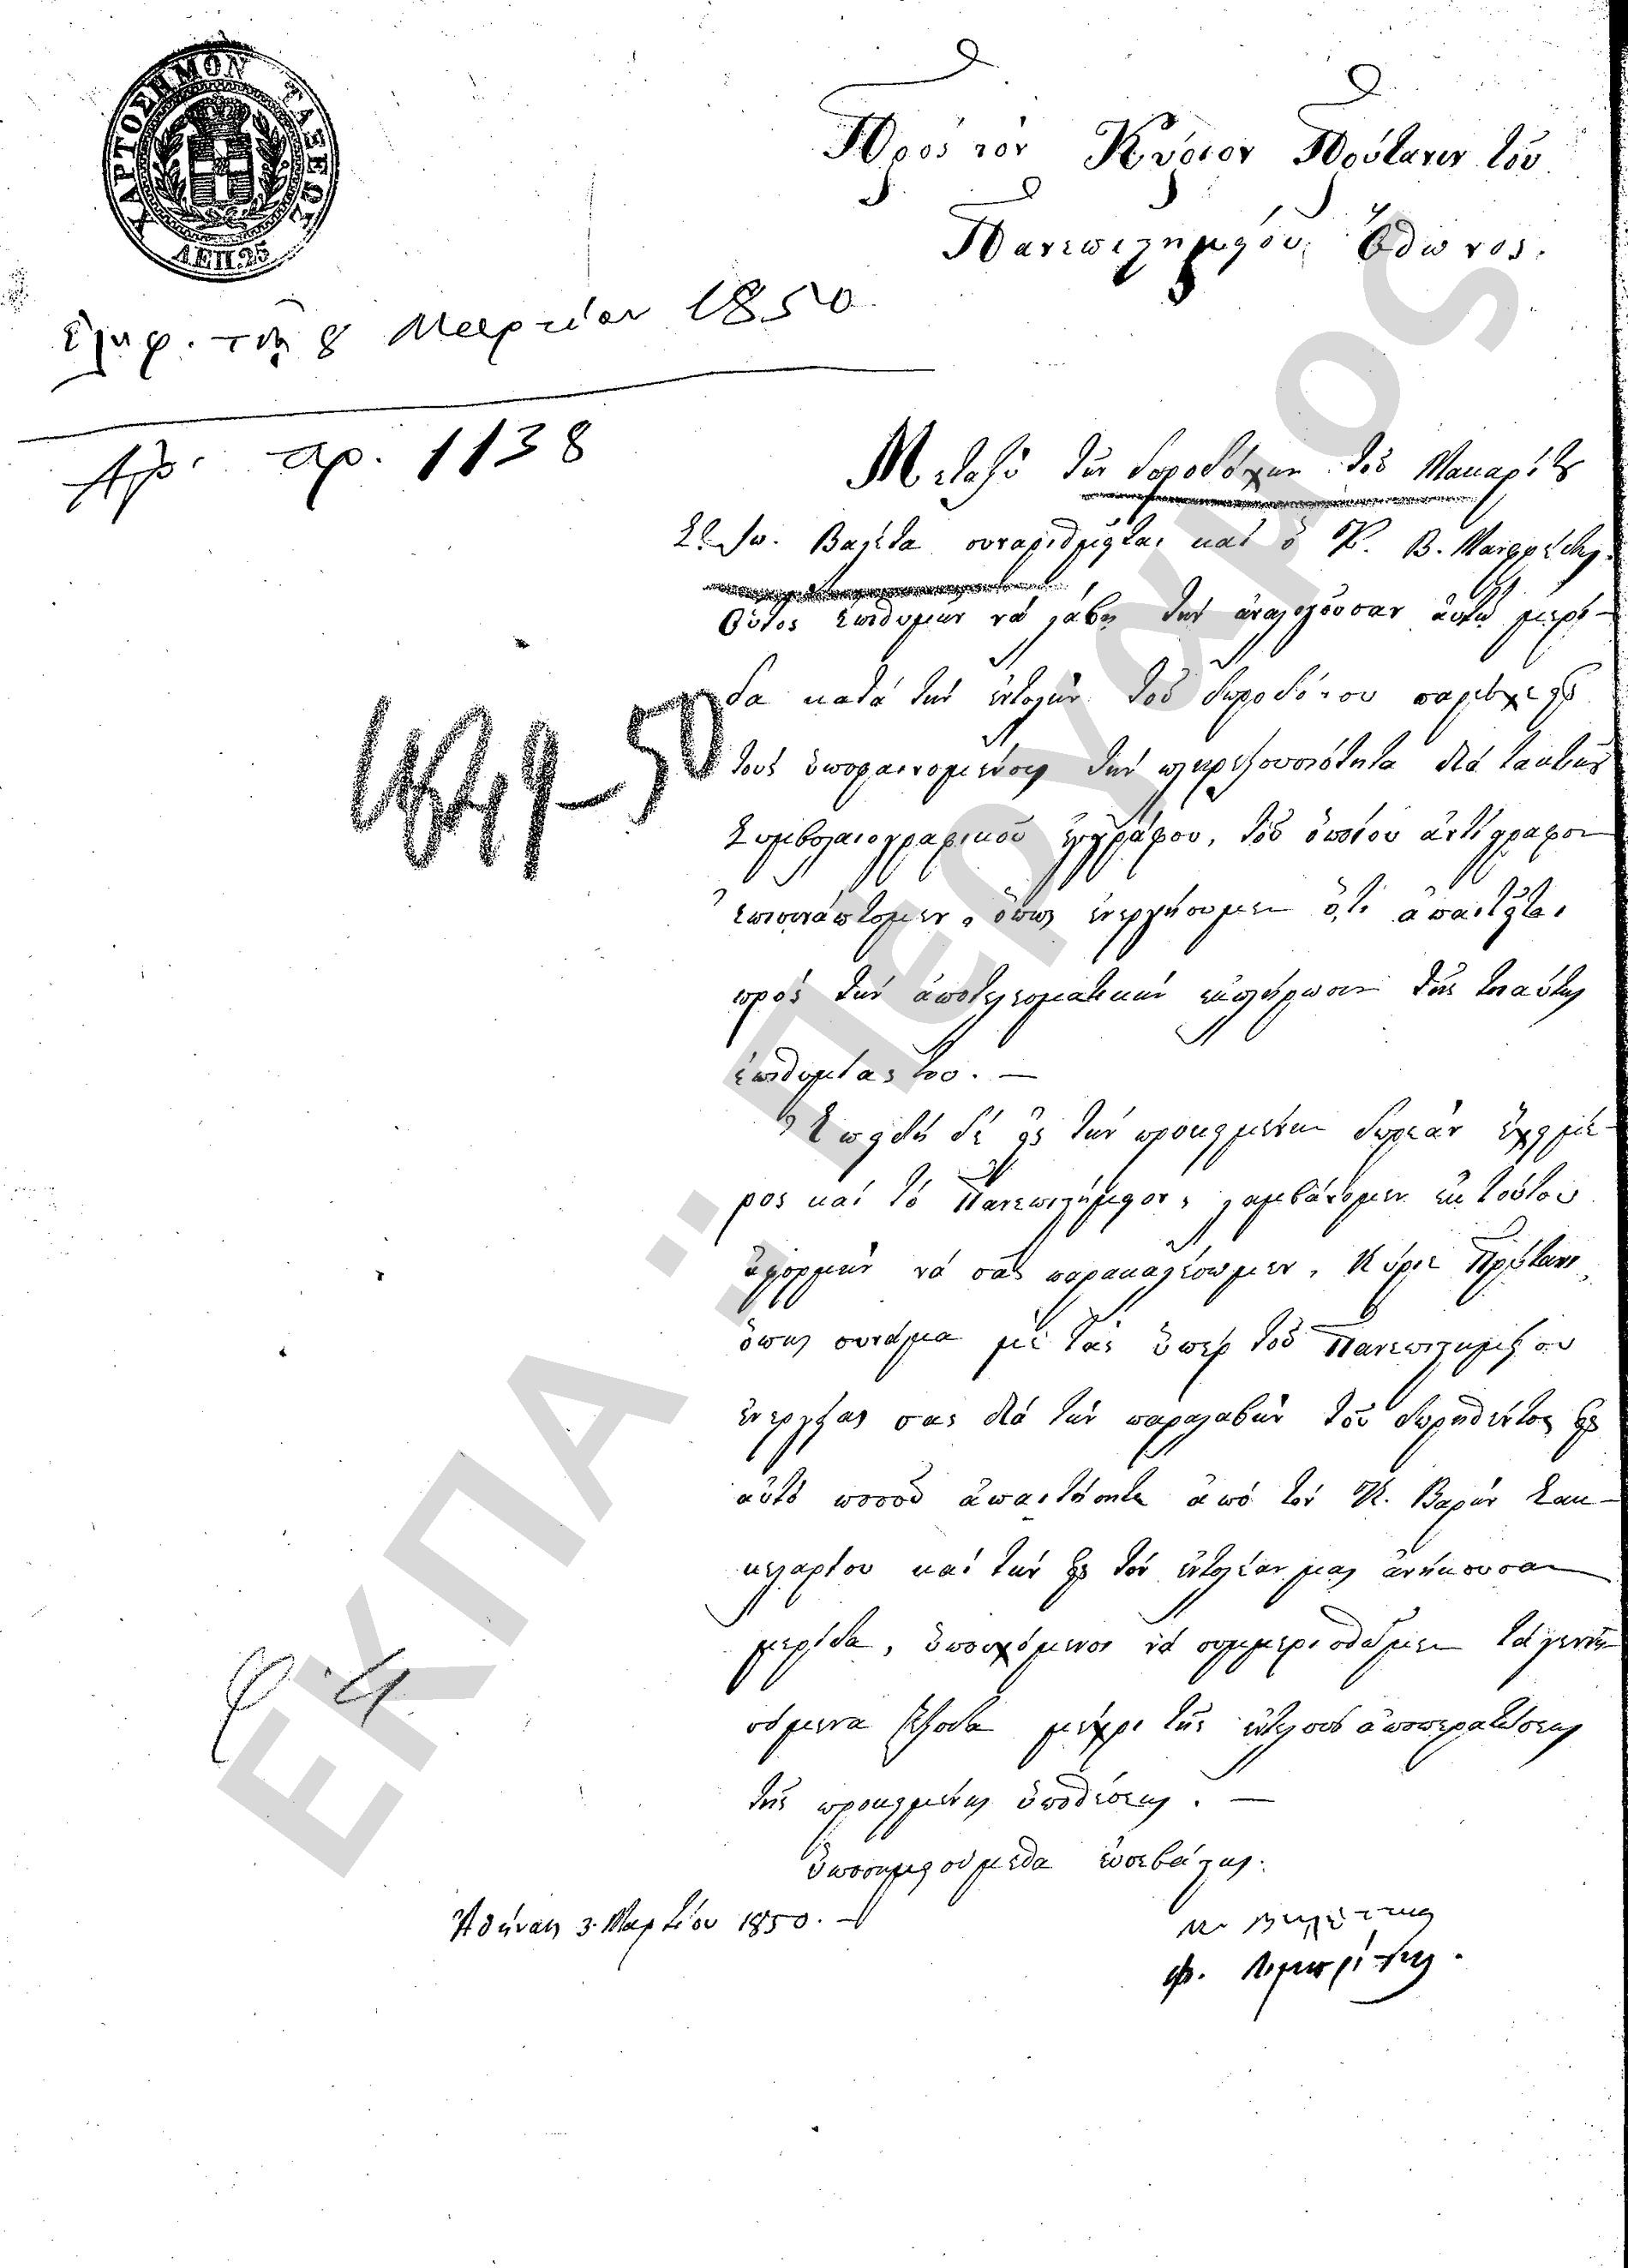 ΧΑΡΤΟΣΗΜΟΝ ΤΑΞΕΩΣ
ΛΕΠ. 25
Πρός τόν Κύριον Πρύτανιν τοῦ
Πανεπιστημείου Ὄθωνος.
Ἐλήφ. τῇ 8 Μαρτίου 1850
Ἀρ. πρ. 1138
Μεταξύ τῶν δωροδόχων τοῦ Μακαρίτου
Σπ. Βαλέτα συναριθμεῖται καί ὁ Κ. Β.
Οὗτος ἐπιθυμῶν νά λάβῃ τήν ἀναλογοῦσαν αὐτῷ μερί-
δα κατά τήν ἐντολήν τοῦ δωροδότου παρέσχε εἰς
τούς ὑποφαινομένους τήν πληρεξουσιότητα διά τακτικοῦ
Συμβολαιογραφικοῦ ἐγγράφου, τοῦ ὁποίου ἀντίγραφον
ἐπισυνάπτομεν, ὅπως ἐνεργήσωμεν ὅ,τι ἀπαιτεῖται
πρός τήν ἀποτελεσματικήν ἐκπλήρωσιν τῆς τοιαύτης
ἐπιθυμίας του. —
Ἐπειδή δέ εἰς τήν προκειμένην δωρεάν ἔχει μέ-
ρος καί τό Πανεπιστήμειον, λαμβάνομεν ἐκ τούτου
ἀφορμήν νά σᾶς παρακαλέσωμεν, Κύριε Πρύτανι,
ὅπως συνάμα μέ τάς ὑπέρ τοῦ Πανεπιστημείου
ἐνεργείας σας διά τήν παραλαβήν τοῦ δωρηθέντος εἰς
αὐτό ποσοῦ ἀπαιτήσητε ἀπό τόν Κ. Βαρῶν Σακ-
κελαρίου καί τήν εἰς τόν ἐντολέαν μας ἀνήκουσαν
μερίδα, ὑποσχόμενοι νά συμμερισθῶμεν τά γενη-
σόμενα ἔξοδα μέχρι τῆς ἐντελοῦς ἀποπερατώσεως
τῆς προκειμένης ὑποθέσεως. —
Ὑποσημειούμεθα εὐσεβάστως.
Ἀθήναις 3 Μαρτίου 1850. —
1849-50
ΕΚΠΑ: ΠΕΡΓΑΜΟΣ